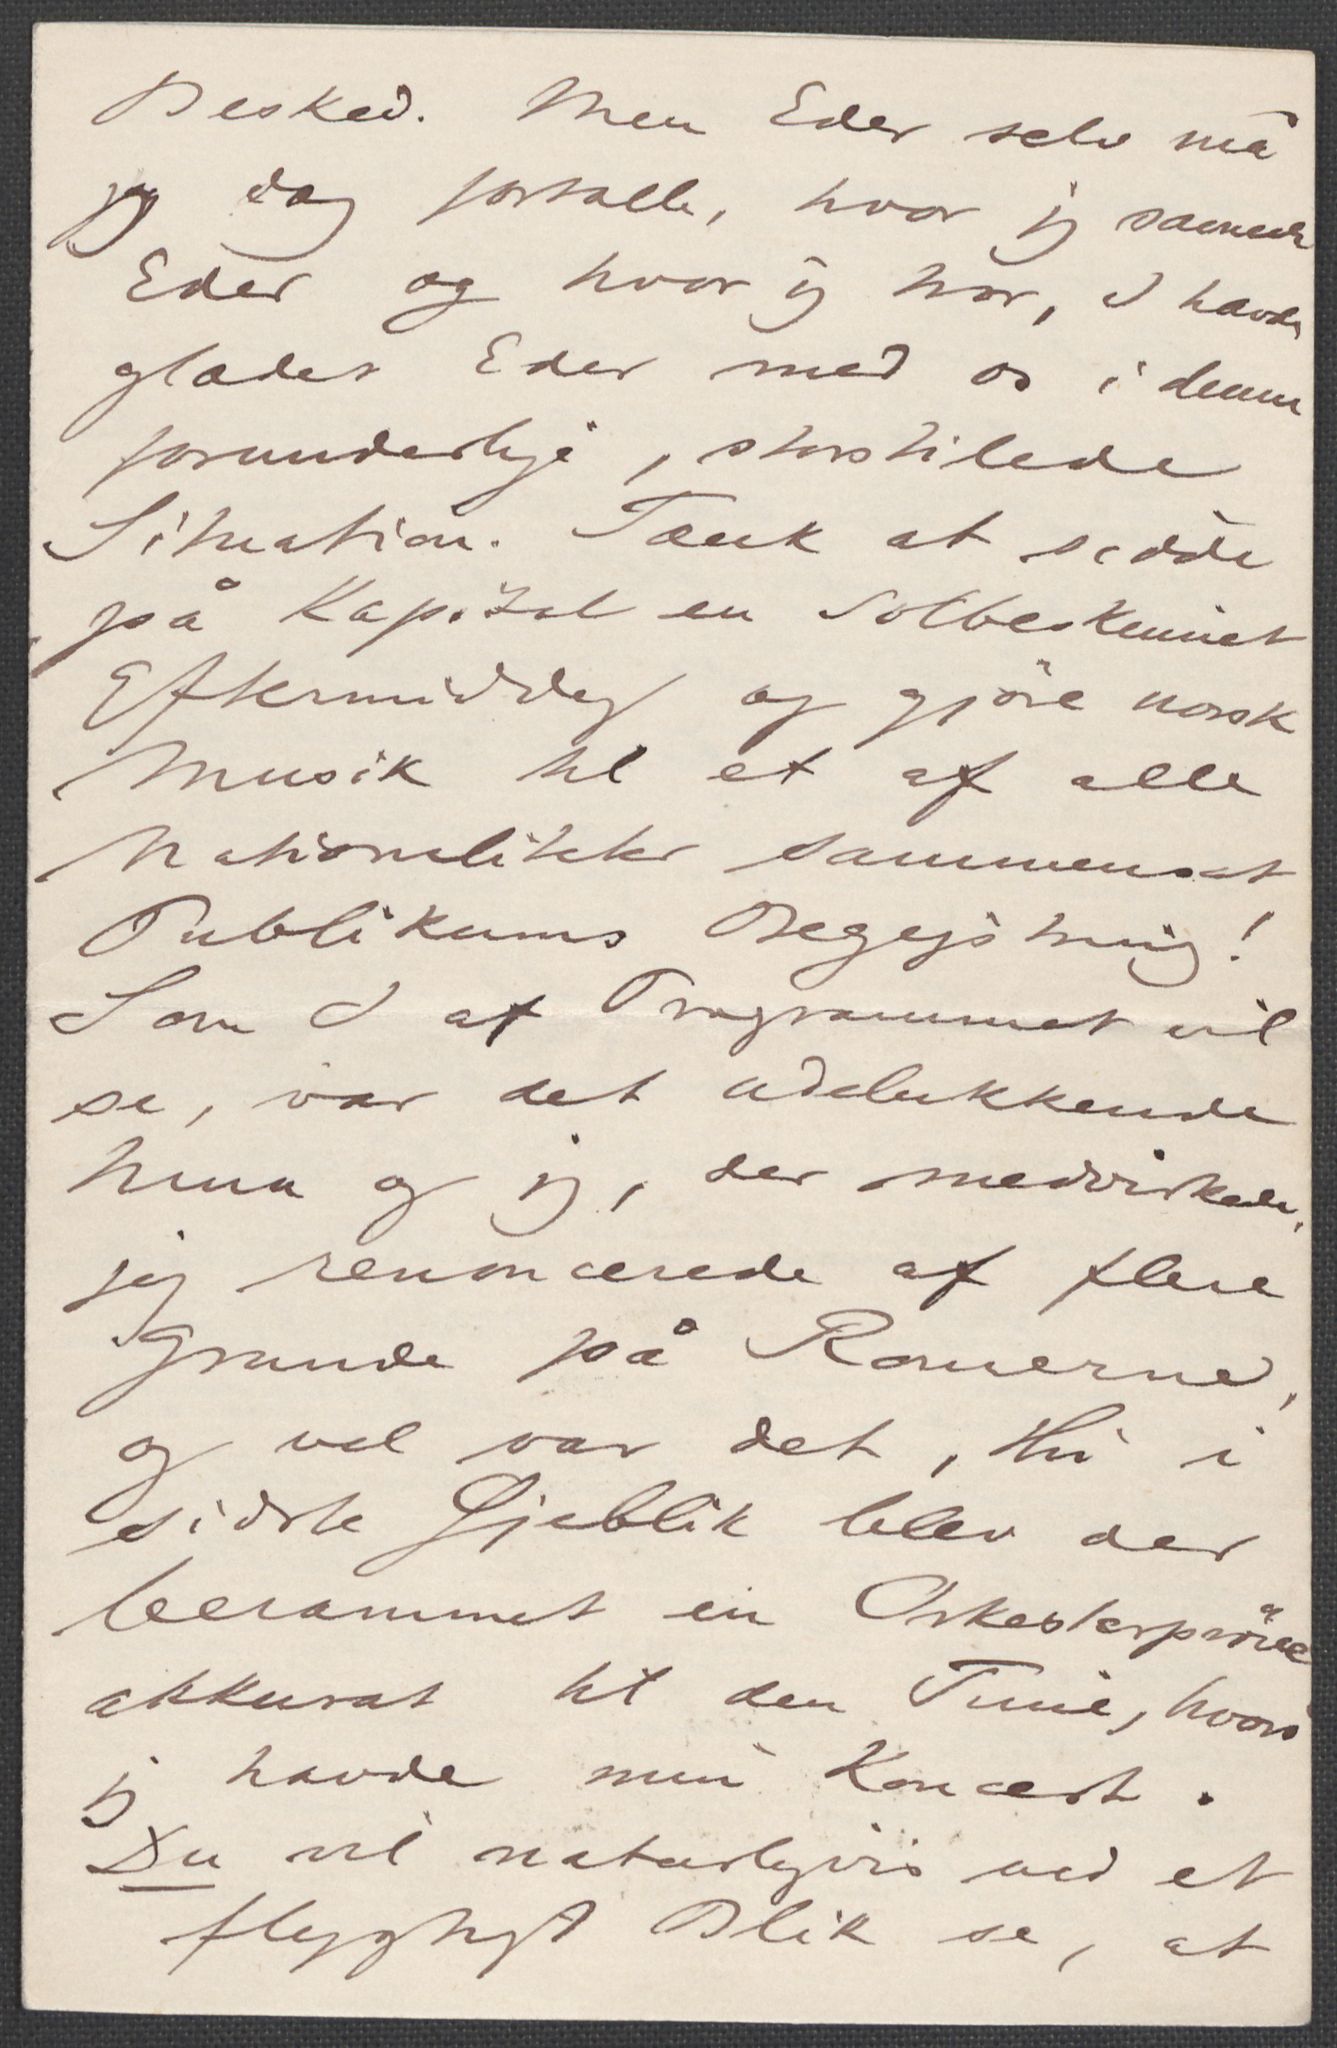 Besked. Men Eder selv må
jeg dog fortælle, hvor jeg savnede
Eder og hvor jeg tror, I havde
glædet Eder med os i denne
forunderlige, storstilede
Situation. Tænk at sidde
på Kapitol en solbeskinnet
Eftermiddag og gjöre norsk
Musik til et af alle
Nationaliteter sammensat
Publikums Begejstring!
Som I af Programmet vil
se, var det udelukkende
Nina og jeg, der medvirkede,
jeg renoncerede af flere
Grunde på Romerne,
og vel var det, thi i
sidste Øjeblik blev der
berammet en Orkesterpröve
akkurat til den Time, hvori
jeg havde min Koncert.
Du vil naturligvis ved et
flygtigt Blik se, at